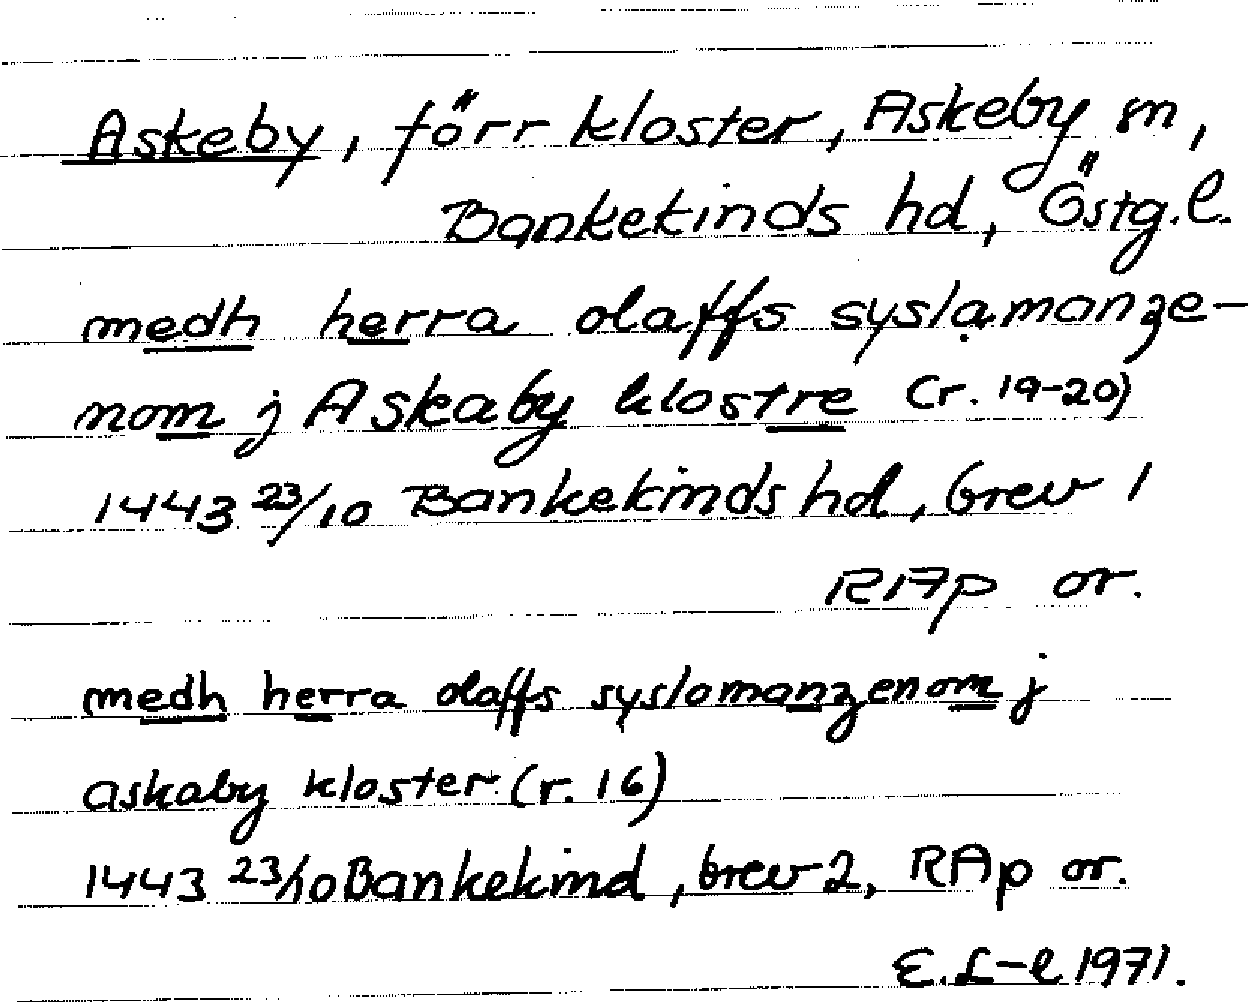 Askeby, förr kloster, Askeby sn,
Bankekinds hd, Östg.l.
medh herra olaffs syslamanze-
nom j Askaby klostre (r. 19-20)
1443 23/10 Bankekinds hd, brev 1
RAp or.
medh herra olaffs syslomanzenom j
askaby kloster (r. 16)
1443 23/10 Bankekind, brev 2, RAp or.
E.L-l 1971.